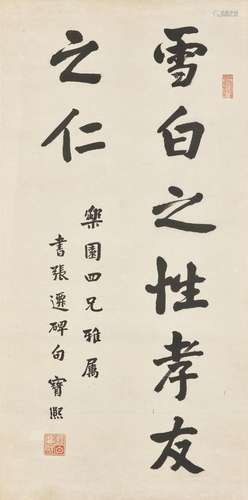 雪白之性孝友
之仁
樂園四兄雅屬
書張遷碑句寶熙